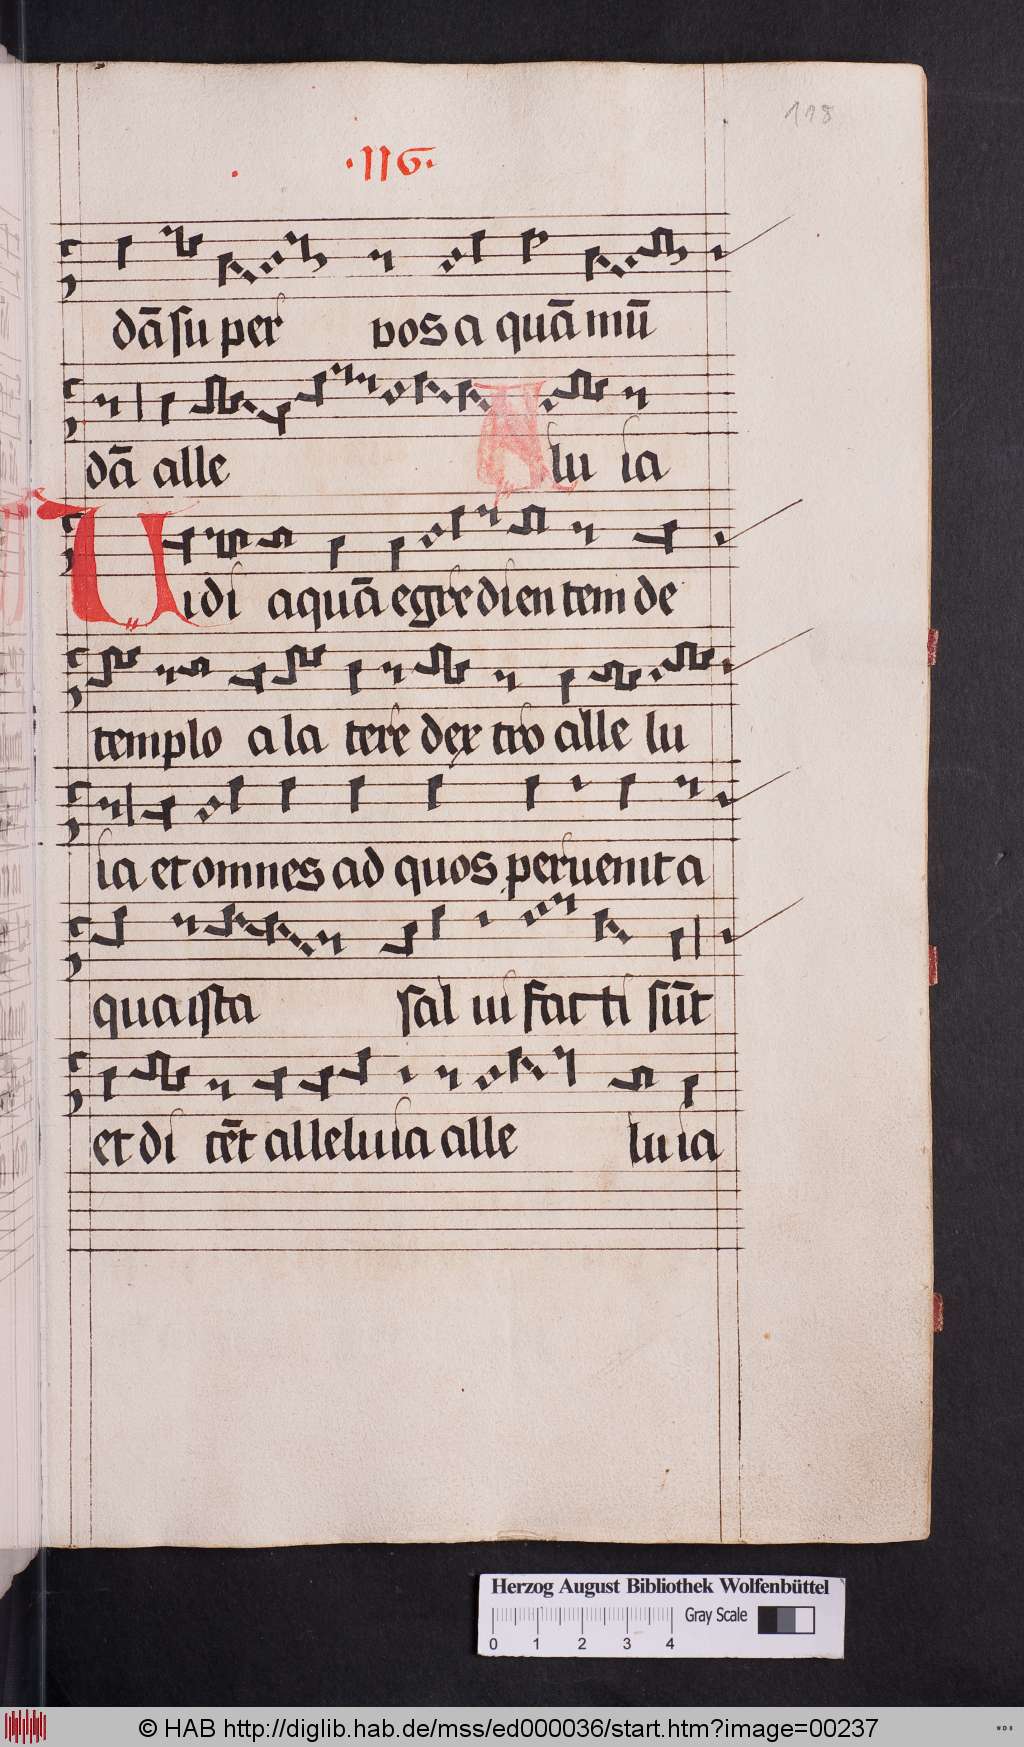 118
·116·
dā su per vos a quā mū
dā alle lu ia
Uidi aquā egre dien tem de
templo a la tere dex tro alle lu
ia et omnes ad quos peruenit a
qua ista sal ui fac ti sūt
et di cēt alleluia alle lu ia
Herzog August Bibliothek Wolfenbüttel
Gray Scale
0 1 2 3 4
© HAB http://diglib.hab.de/mss/ed000036/start.htm?image=00237